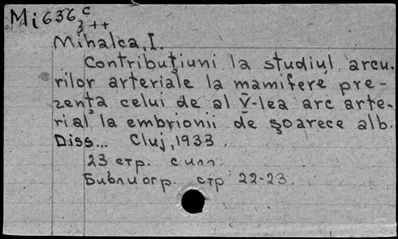 Mi636c
3++
Mihalca, I.
Contribuţiuni la studiul arcu-
rilor arteriale la mamifere pre-
zenţa celui de al V̄-lea arc arte-
rial la embrionii de şoarece alb.
Diss... Cluj, 1933.
23 стр. с илл.
Библиогр. стр 22-23.